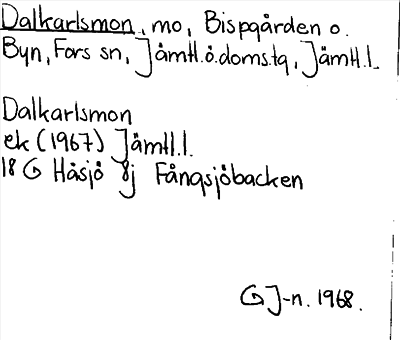 Dalkarlsmon, mo, Bispgården o.
Byn, Fors sn, Jämtl.ö.doms.tg, Jämtl.l.
Dalkarlsmon
ek (1967) Jämtl.l.
18 G Håsjö 8j Fångsjöbacken
GJ-n. 1968.